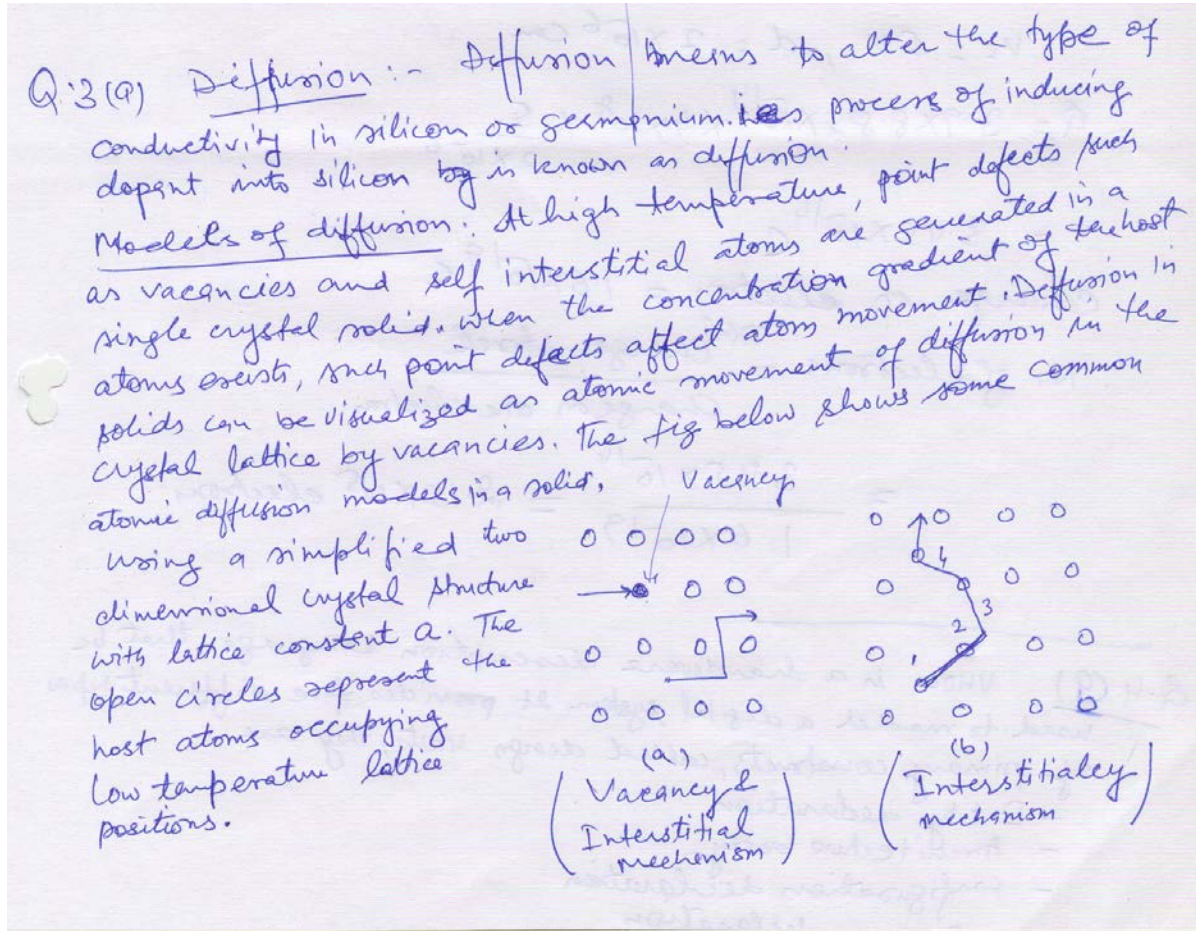 Q:3(a) Diffusion :- Diffusion means to alter the type of
conductivity in silicon or germanium. process of inducing
dopant into silicon is known as diffusion.
Models of diffusion: At high temperature, point defects such
as vacancies and self interstitial atoms are generated in a
single crystal solid. When the concentration gradient of the host
atoms exists, such point defects affect atom movement. Deffusion in
solids can be visualized as atomic movement of diffusion in the
crystal lattice by vacancies. The fig below shows some common
atomic diffusion models in a solid,
using a simplified two
dimensional crystal structure
with lattice constant a. The
open circles represent the
host atoms occupying
Low temperature lattice
positions.
Vacancy
(a)
(Vacancy &
Interstitial
mechenism)
1
2
3
4
(b)
(Interstitialcy
mechanism)